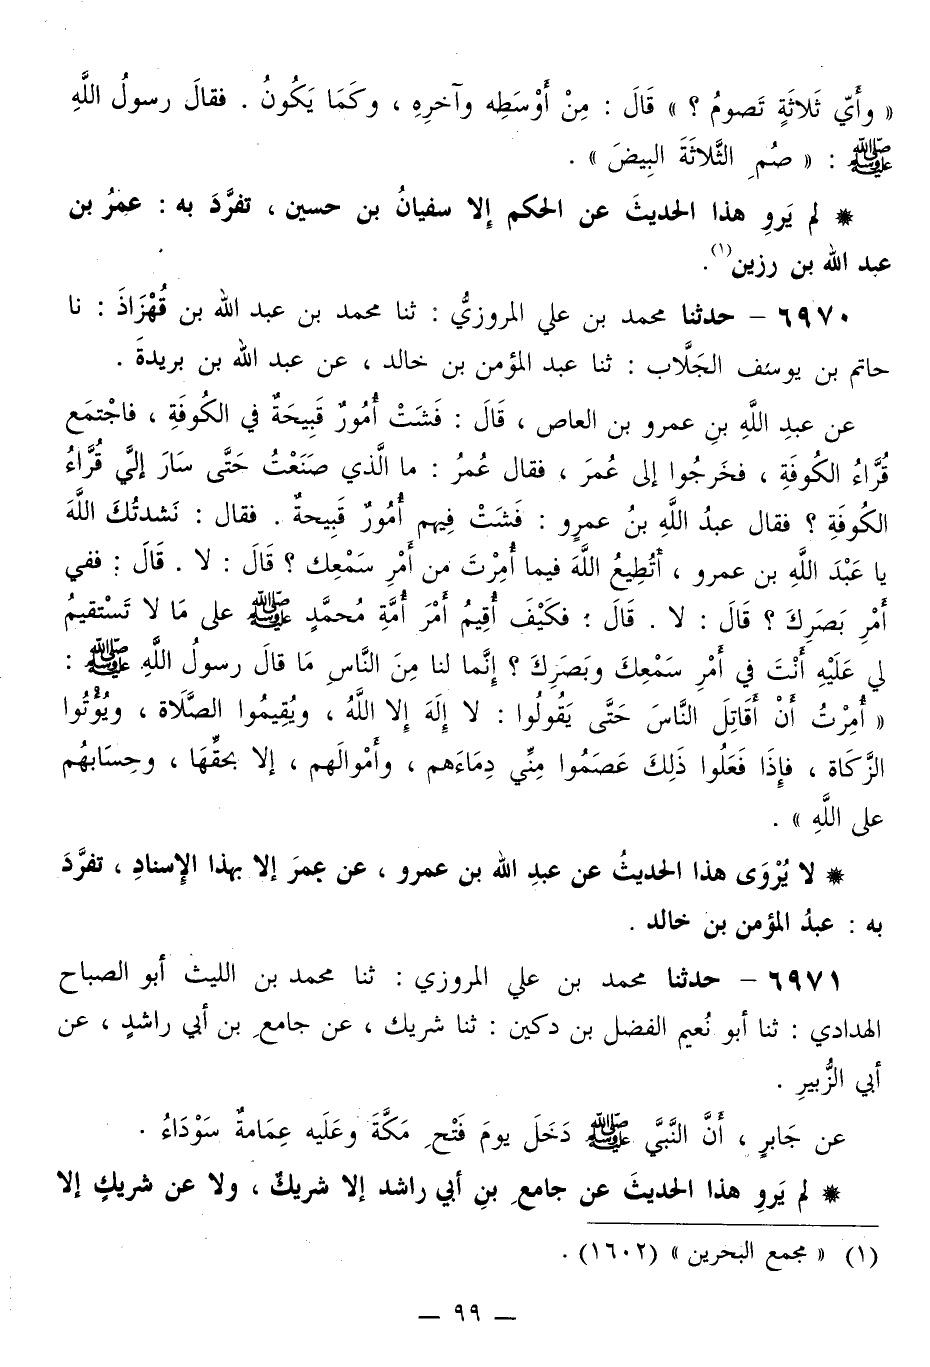 « وأَيّ ثَلاثَةٍ تَصومُ ؟ » قَالَ : مِنْ أَوْسَطِه وآخرِهِ ، وكَمَا يَكُونُ . فقالَ رسولُ اللَّهِ
ﷺ : « صُمِ الثَّلاثَةَ البِيضَ » .
* لم يَروِ هذا الحديثَ عن الحكم إلا سفيانُ بن حسين ، تفرَّدَ به : عمرُ بن
عبد الله بن رزين(١).
٦٩٧٠ - حدثنا محمد بن علي المروزيُّ : ثنا محمد بن عبد الله بن قُهْزَاذَ : نا
حاتم بن يوسف الجَلَّاب : ثنا عبد المؤمن بن خالد ، عن عبد الله بن بريدةَ .
عن عبدِ اللَّهِ بنِ عمرو بن العاص ، قَالَ : فَشَتْ أُمُورٌ قَبِيحَةٌ في الكُوفَةِ ، فاجْتمَع
قُرَّاءُ الكُوفَةِ ، فخَرجُوا إلى عُمرَ ، فقال عُمرُ : ما الَّذي صنَعْتُ حَتَّى سَارَ إليَّ قُرَّاءُ
الكوفَةِ ؟ فقال عبدُ اللَّهِ بنُ عمرٍو : فَشَتْ فِيهم أُمُورٌ قَبِيحةٌ . فقال : نَشدتُكَ اللَّهَ
يا عَبْدَ اللَّهِ بن عمرو ، أَتُطِيعُ اللَّهَ فيما أُمِرْتَ من أَمْرِ سَمْعِك ؟ قَالَ : لا . قَالَ : ففي
أَمْرِ بَصَرِكَ ؟ قَالَ : لا . قَالَ : فكَيْفَ أُقِيمُ أَمْرَ أُمَّةِ مُحمَّدٍ ﷺ على مَا لا تَسْتقيمُ
لي عَلَيْهِ أَنْتَ في أَمْرِ سَمْعِكَ وبَصَرِكَ ؟ إنَّما لنا مِنَ النَّاسِ مَا قالَ رسولُ اللَّهِ ﷺ :
« أُمِرْتُ أَنْ أُقَاتِلَ النَّاسَ حَتَّى يَقُولُوا : لا إلَهَ إلا اللَّهُ ، ويُقِيمُوا الصَّلَاة ، ويُؤْتُوا
الزَّكَاة ، فإِذَا فَعَلُوا ذَلِكَ عَصَمُوا مِنِّي دِمَاءَهم ، وأَمْوالَهم ، إلا بحقِّهَا ، وحِسابُهُم
على اللَّهِ » .
* لا يُرْوَى هذا الحديثُ عن عبدِ الله بن عمرو ، عن عمرَ إلا بهذا الإِسنادِ ، تفرَّدَ
به : عبدُ المؤمن بن خالد .
٦٩٧١ - حدثنا محمد بن علي المروزي : ثنا محمد بن الليث أبو الصباح
الهدادي : ثنا أبو نُعيم الفضل بن دكين : ثنا شريك ، عن جامعِ بن أبي راشدٍ ، عن
أبي الزُّبيرِ .
عن جَابرٍ ، أَنَّ النَّبيَّ ﷺ دَخَلَ يومَ فَتْحِ مَكَّةَ وعَلَيه عِمَامةٌ سَوْدَاءُ .
* لم يَروِ هذا الحديثَ عن جامعِ بنِ أبي راشد إلا شريكٌ ، ولا عن شريكٍ إلا
(١) « مجمع البحرين » (١٦٠٢) .
— ٩٩ —